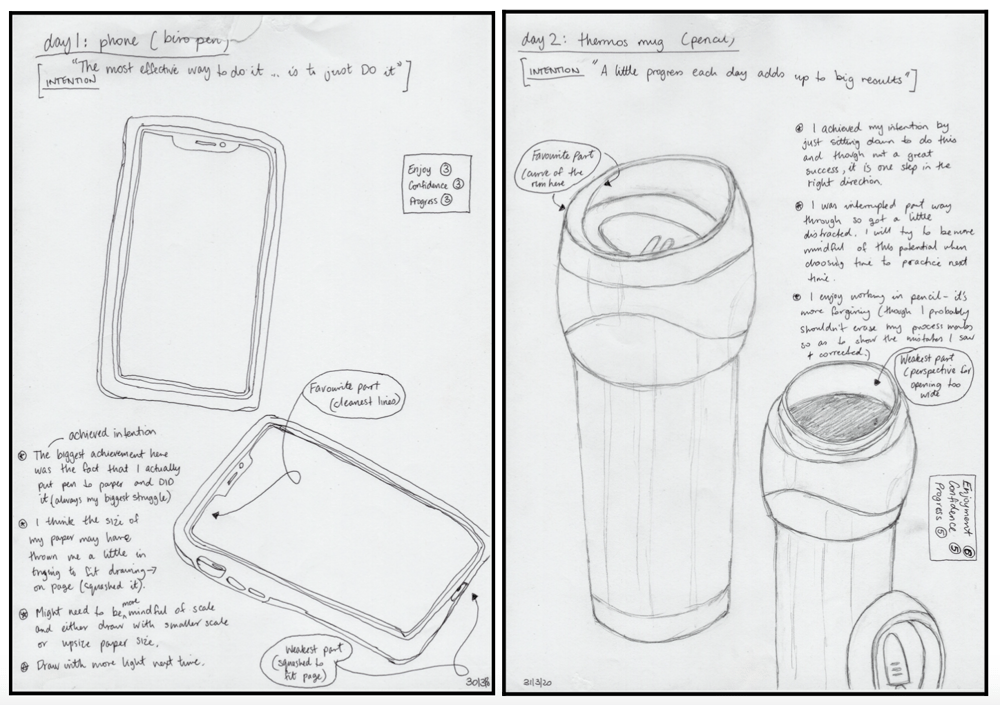 day 1: phone (biro pen)
["The most effective way to do it ... is to just Do it"]
INTENTION
Enjoy 3
Confidence 3
Progress 3
Favourite part
(cleanest lines)
achieved intention
The biggest achievement here
was the fact that I actually
put pen to paper and DID
it (always my biggest struggle)
I think the size of
my paper may have
thrown me a little in
trying to fit drawing →
on page (squashed it).
Might need to be more mindful of scale
and either draw with smaller scale
or upsize paper size.
Draw with more light next time.
Weakest part
(squashed to
fit page)
30/3/
day 2: thermos mug (pencil)
[INTENTION "A little progress each day adds up to big results"]
Favourite part
(curve of the
rim here
I achieved my intention by
just sitting down to do this
and though not a great
success, it is one step in the
right direction.
I was interrupted part way
through so got a little
distracted. I will try to be more
mindful of this potential when
choosing time to practice next
time.
I enjoy working in pencil - it's
more forgiving (though I probably
shouldn't erase my process marks
so as to show the mistakes I saw
+ corrected.)
Weakest part
(perspective for
opening too
wide
Enjoyment 6
Confidence 5
Progress 5
31/3/20